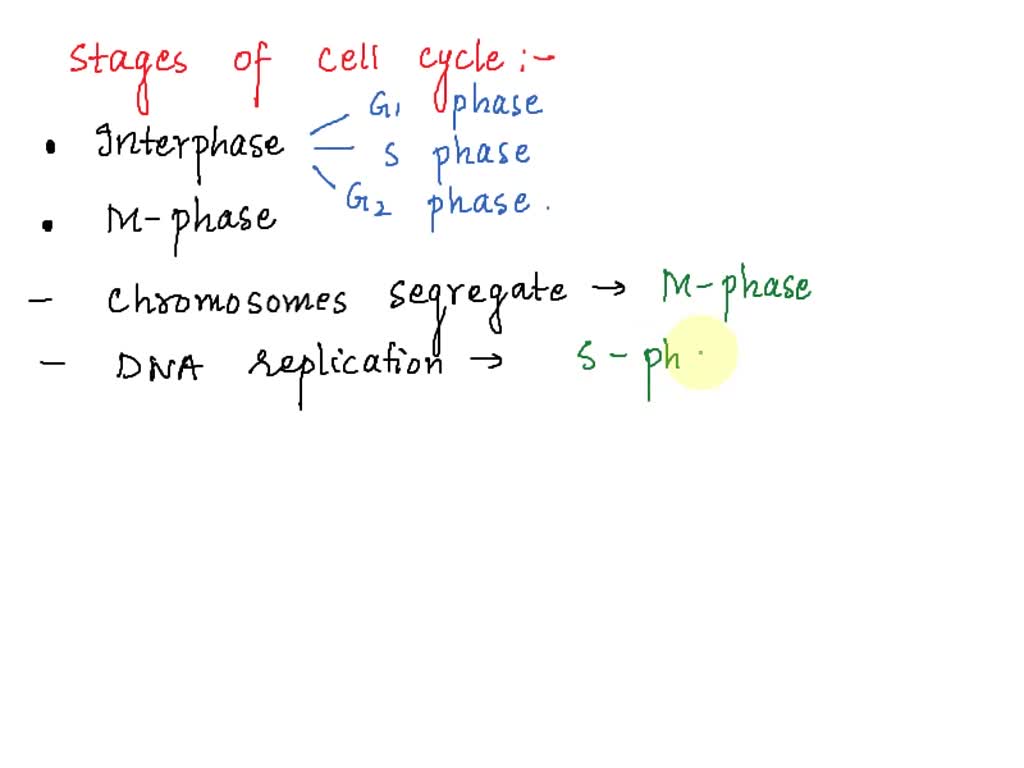 Stages of cell cycle :-
G1 phase
• Interphase
S phase
G2 phase.
• M-phase
- Chromosomes segregate → M-phase
- DNA replication → S-ph